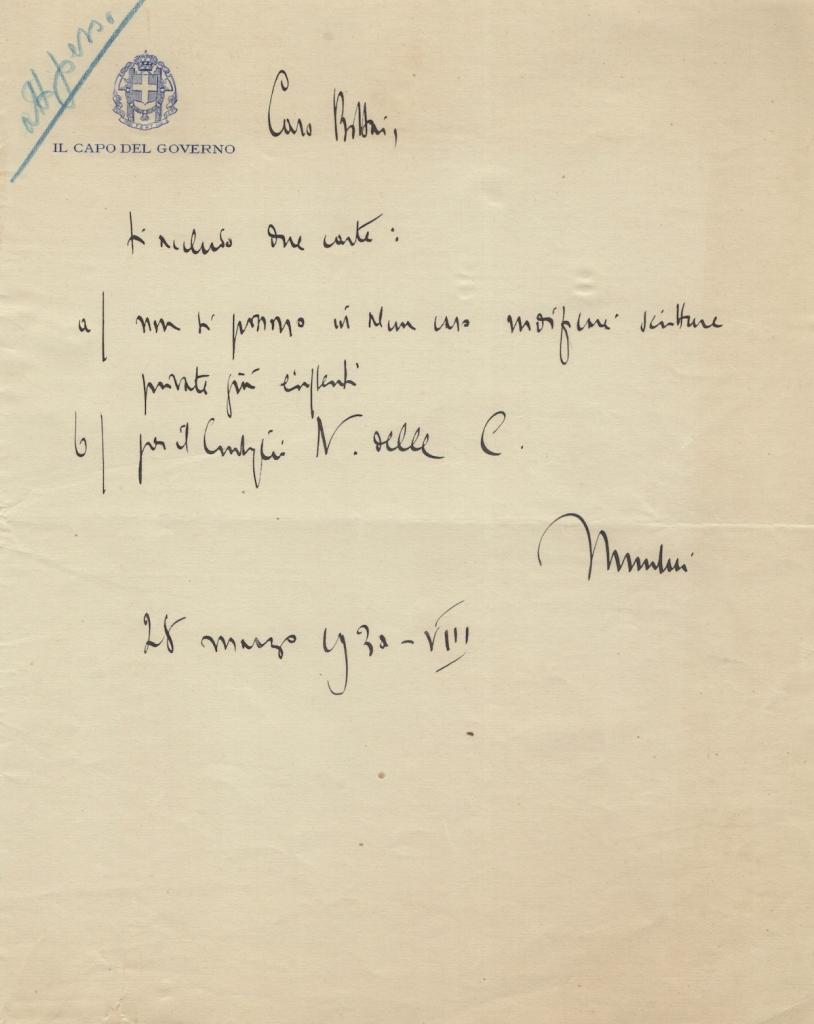 att. pers.
IL CAPO DEL GOVERNO
Caro Bottai,
ti accludo due carte:
a/ non si possono in alcun caso modificare scritture
private già esistenti
b/ per il Consiglio N. delle C.
Mussolini
28 marzo 1930-VIII